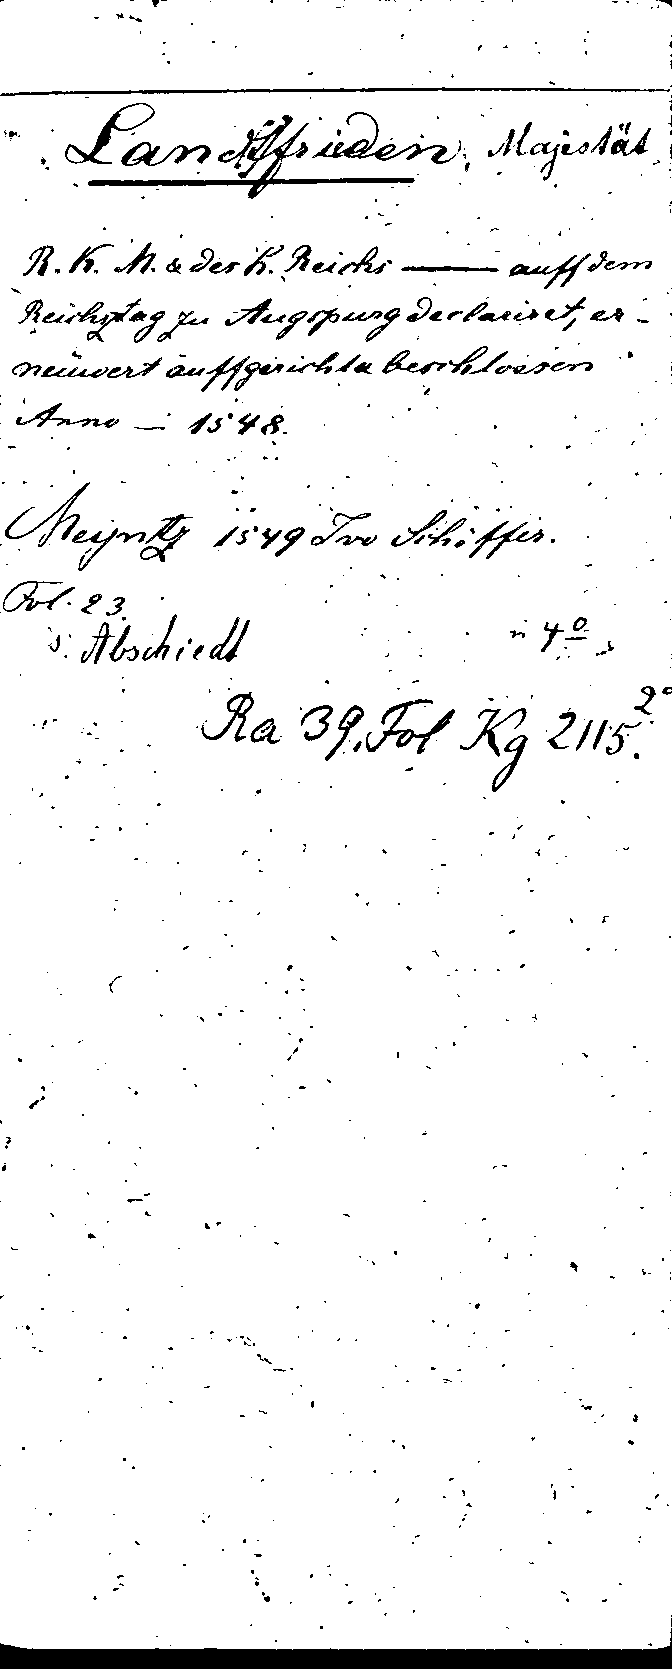 Landtfrieden, Majestät
R. K. M. & des H. Reichs — auff dem
Reichstag zu Augspurg declariret, er-
neüwert auffgericht u beschlossen
Anno — 1548.
Meyntz 1549 Ivo Schöffer.
Fol. 23.
s. Abschiedt in 4º
Ra 39. Fol Kg 2115. 2º